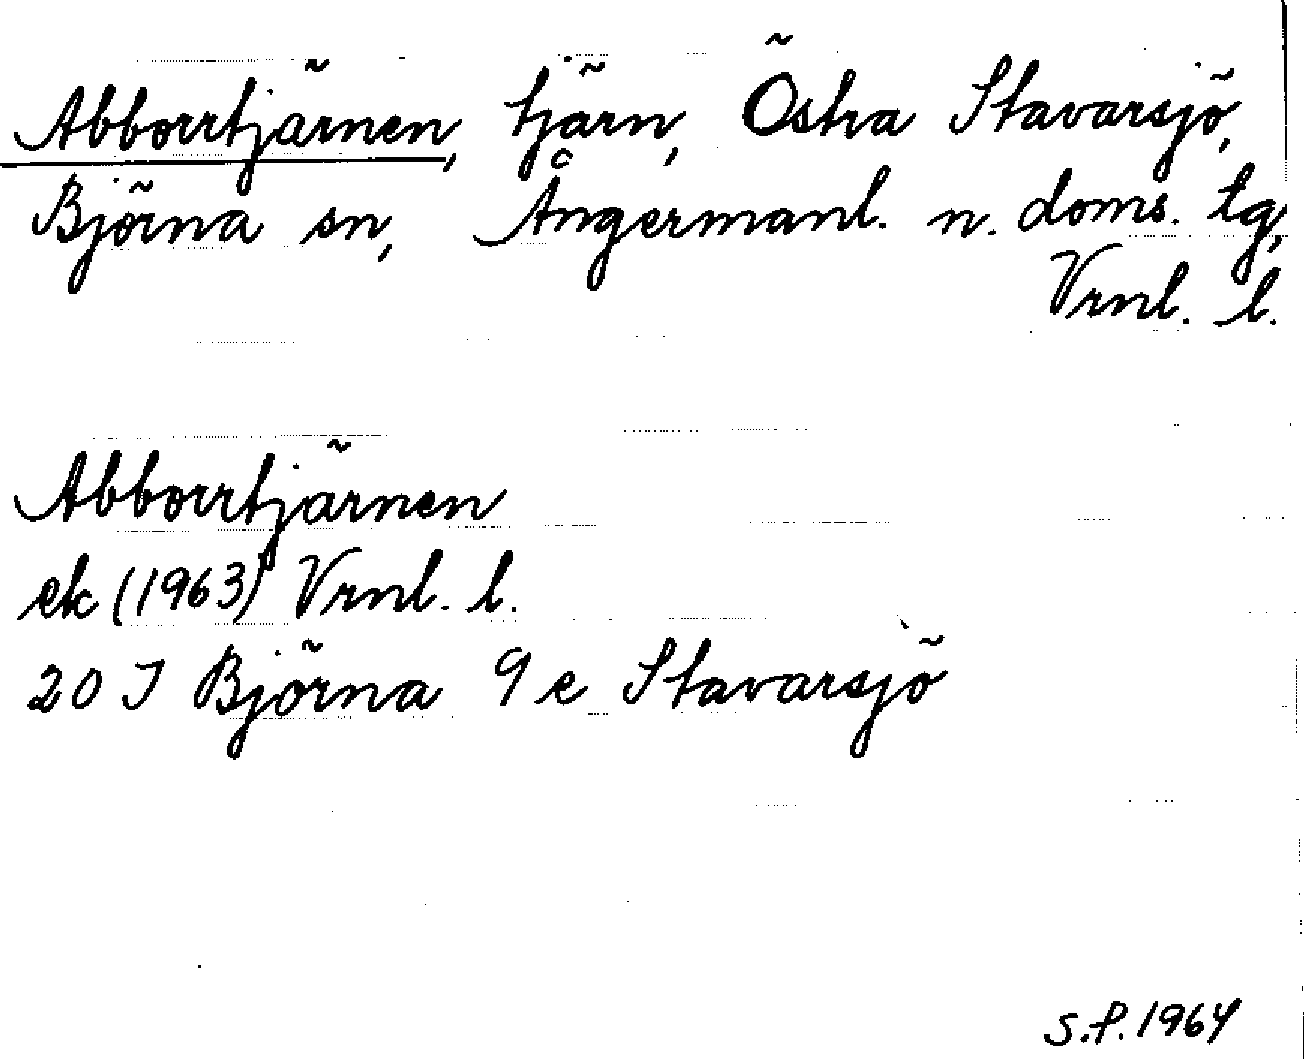 Abborrtjärnen, tjärn, Östra Stavarsjö,
Björna sn, Ångermanl. n. doms. tg,
Vrnl. l.
Abborrtjärnen
ek (1963) Vrnl. l.
20 J Björna 9 e Stavarsjö
S.P. 1964